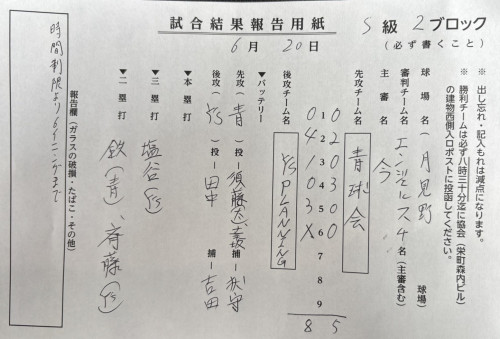 試合結果報告用紙
S級 2ブロック
(必ず書くこと)
6月 20日
※ 出し忘れ・記入もれは減点になります。
※ 勝利チームは必ず八時三十分迄に協会(栄町森内ビル)
の建物西側入口ポストに投函してください。
球場名(月見野 球場)
審判チーム名 エンジェルス 4名(主審含む)
主審名 今
先攻チーム名 青球会
1 2 3 4 5 6 7 8 9
0 2 0 3 0 0 5
0 4 0 3 X 8
後攻チーム名 YS PLANNING
▼バッテリー
先攻(青)投―須藤 捕―
後攻(YS)投―田中 捕―吉田
▼本塁打
▼三塁打 塩谷(YS)
▼二塁打 鉄(青)、斉藤(YS)
報告欄(ガラスの破損・たばこ・その他)
時間制限より6イニングまで